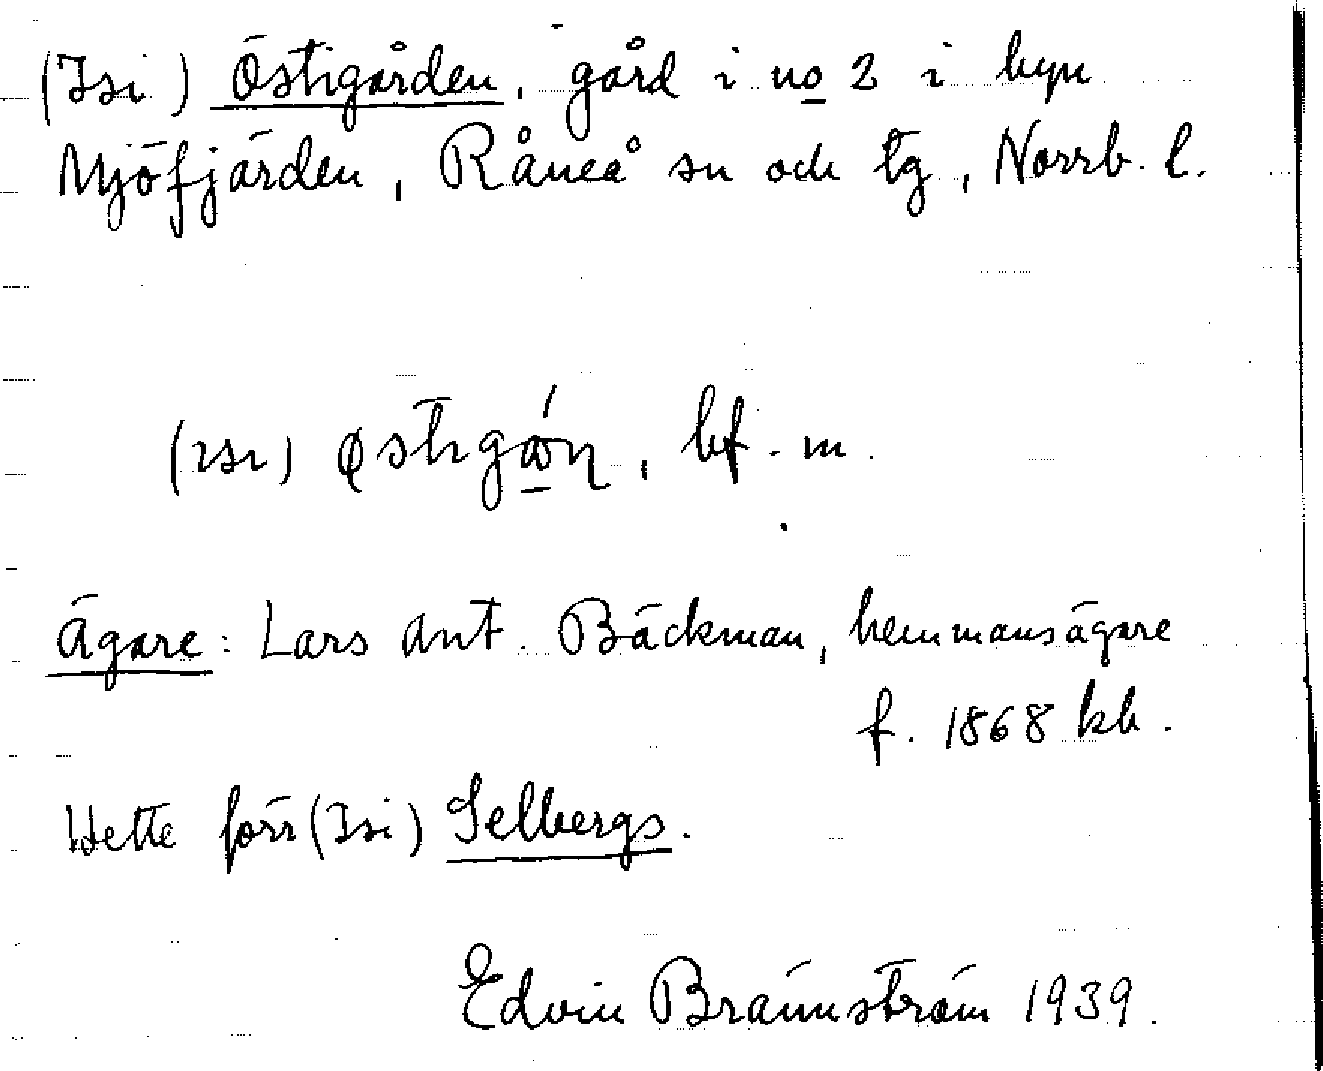 (Isi) Östigården, gård i no 2 i byn
Mjöfjärden, Råneå sn och tg, Norrb. l.
(ısı) østıgώn, bf. m.
Ägare: Lars Ant. Bäckman, hemmansägare
f. 1868 kb.
Hette förr (Isi) Selbergs.
Edvin Brännström 1939.